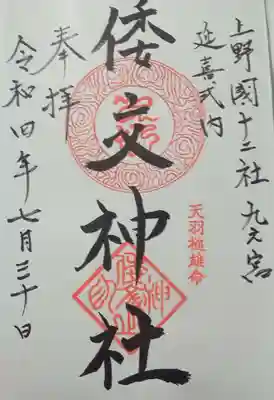 上野國十二社 九之宮
延喜式内
倭文神社
天羽槌雄命
奉拝
令和四年七月三十日